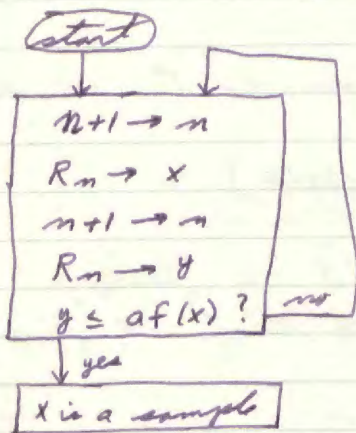 start
n+1 → n
Rn → x
n+1 → n
Rn → y
y ≤ af(x) ? no
yes
x is a sample